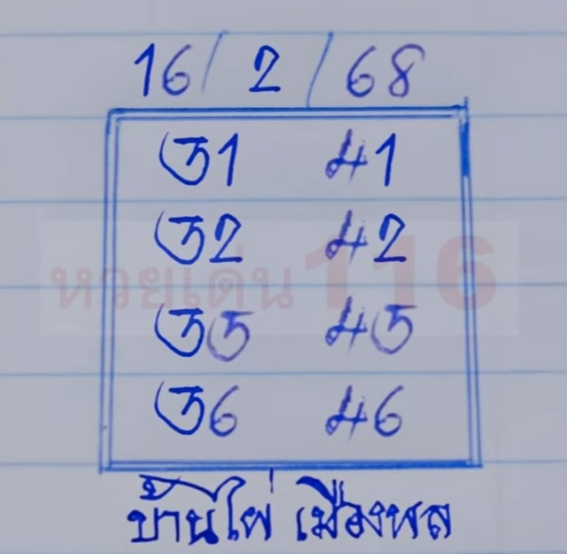 16/2/68
51 41
52 42
หวยเด่น 116
55 45
56 46
บ้านไผ่ เมืองพล